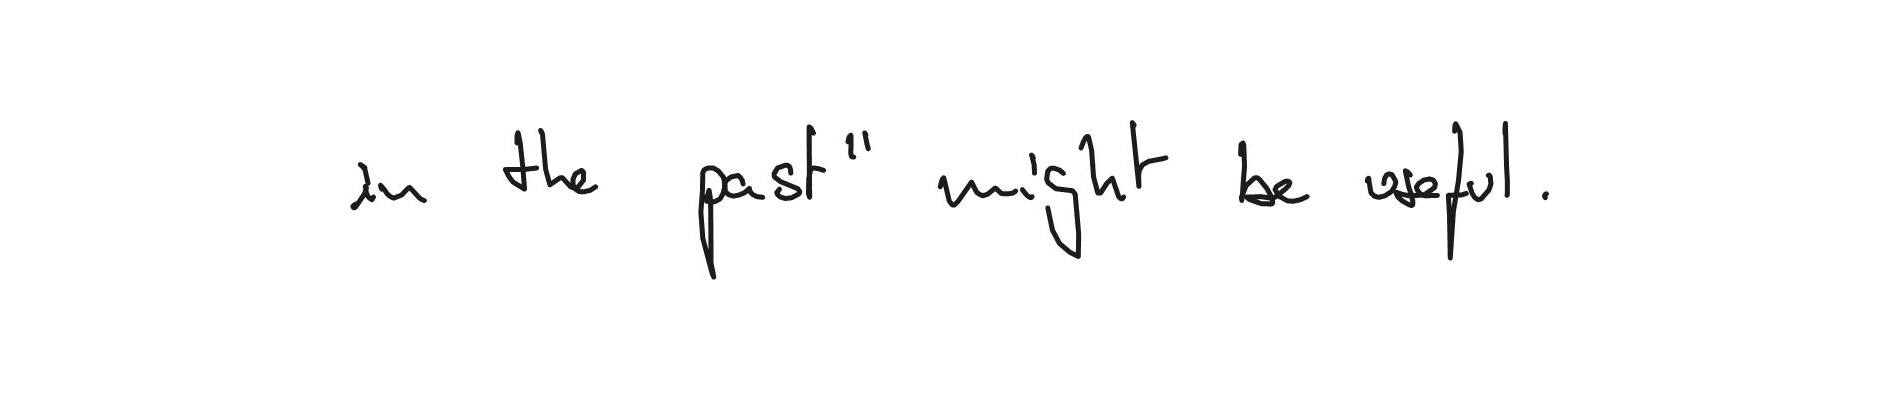 in the past" might be useful.